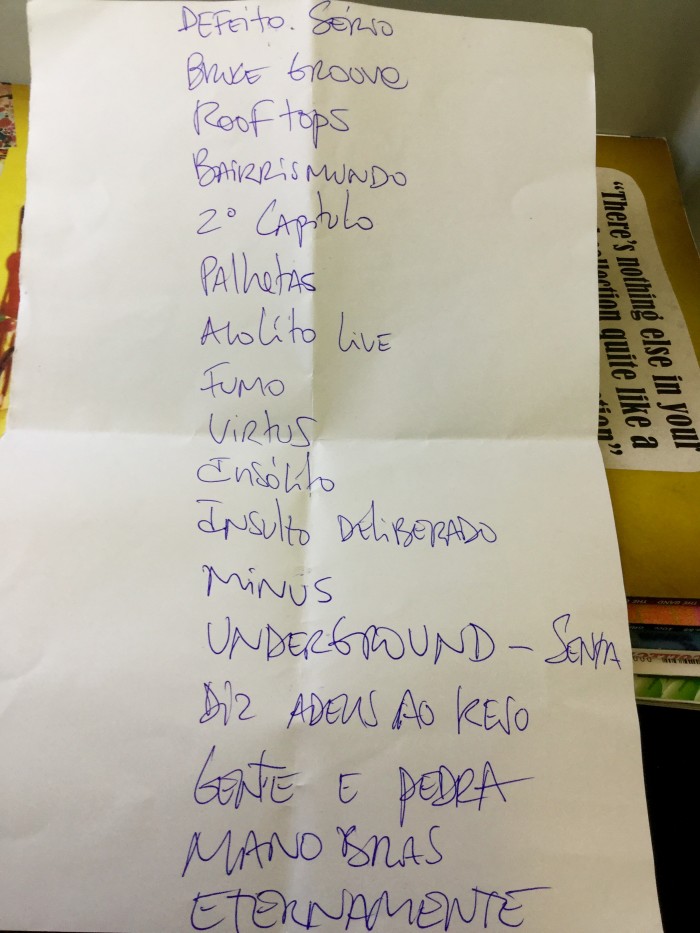 DEFEITO. SÉRIO
BRUKE GROOVE
ROOFTOPS
BAIRRISMUNDO
2º CAPITULO
PALHETAS
ACOLITO LIVE
FUMO
VIRTUS
INSÓLITO
INSULTO DELIBERADO
MINUS
UNDERGROUND - SENHA
DIZ ADEUS AO RESO
GENTE E PEDRA
MANOBRAS
ETERNAMENTE
"There's nothing else in your
collection quite like a